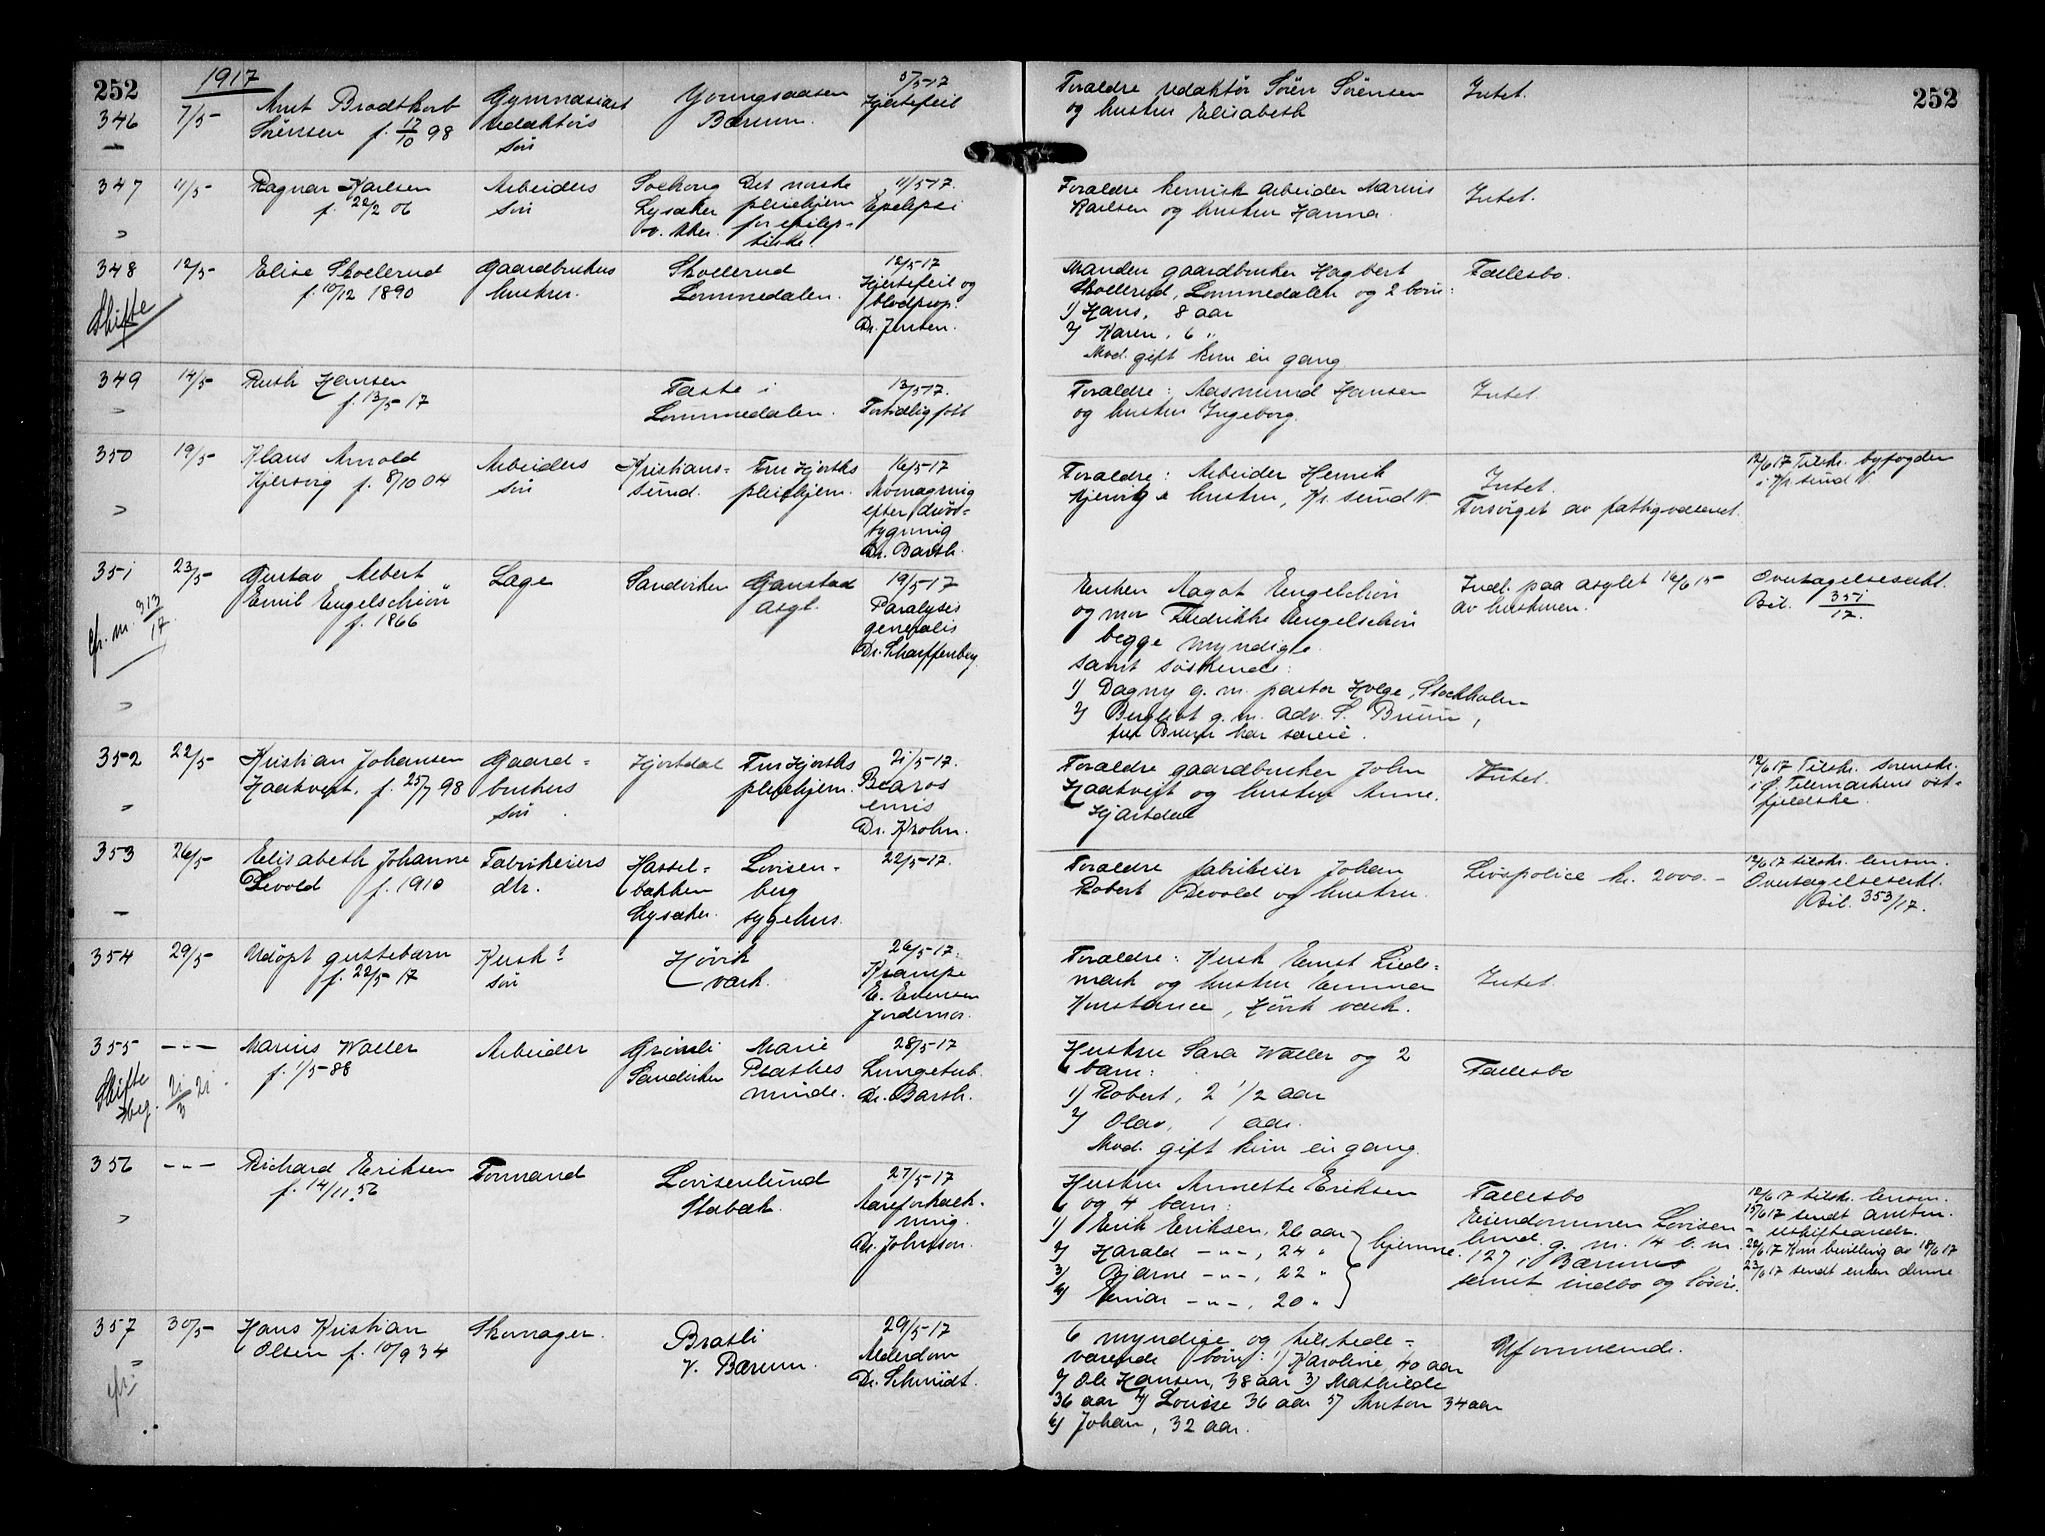 252
1917
346
7/5-
Arnt Brodtkorb
Sörensen f. 17/10 98
Gymnasiast
redaktörs
sön
Youngsaasen
Bærum.
5/5-17
Hjertefeil
Foraldre redaktör Sören Sörensen
og hustru Elisabeth
Intet.
252
347
11/5-
Ragnar Karlsen
f. 22/2 06
Arbeiders
sön
Lysaker
v. Aker.
Det norske
pleiehjem
for epilep-
tiske.
11/5 17.
Epelepsi
Foraldre kemisk arbeider Marius
Karlsen og hustru Hanna.
Intet.
348
Skifte
12/5-
Elise Skollerud
f. 10/12 1890
Gaardbrukers
hustru.
Skollerud
Lommedalen.
12/5-17
Hjertefeil og
blodprop.
Dr. Jensen.
Manden gaardbruker Hagbert
Skollerud, Lommedalen og 2 born:
1) Hans, 8 aar
2) Karen, 6 "
Avd. gift kun en gang
Fallesbo.
349
14/5-
Ruth Hansen
f. 13/5-17
Taste i
Lommedalen.
13/5 17.
Fortidlig fött
Foraldre: Aasmund Hansen
og hustru Ingeborg.
Intet.
350
19/5-
Klaus Arnold
Kjersvig f. 8/10 04
Arbeiders
sön
Kristians-
sund.
Fru Hjorths
pleiehjem.
16/5-17
efter
Dr. Barth.
Foraldre: Arbeider Henrik
Kjersvig & hustru, Kr. sund N.
Intet.
Forsörget av fattigvæsenet.
12/6 17 Tilskr. byfogden
i Kr. sund N
351
cfr. m. 313/17.
23/5-
Gustav Albert
Emil Engelschiön
f. 1866
Læge
Sandviken
Gaustad
asyl.
19/5-17
Paralysis
generalis
Dr. Scharffenberg
Enken Aagot Engelschön
og mor Fredrikke Engelschön
begge myndige.
samt söskende:
1) Dagny g. m. pastor Holge, Stockholm
2) Bergliot g. m. adv. S. Bruun,
fru Bruun har særeie.
Indl. paa asylet 16/6 15
av hustruen.
Overtagelseserkl.
Bil. 351/17.
352
22/5-
Kristian Johansen
Haatveit, f. 25/7 98
Gaard-
brukers
sön
Hjortdal
Fru Hjorths
pleiehjem.
21/5-17.
Dr. Krohn.
Foraldre gaardbruker John
Haatveit og hustru Anne.
Hjartdal
Intet.
12/6 17 Tilskr. sorenskr.
i ö. Telemarkens öst-
fjeldske.
353
26/5-
Elisabeth Johanne
Devold f. 1910
Fabrikeiers
dtr.
Hassel-
bakken
Lysaker.
Lovisen-
berg
sygehus.
22/5-17.
Foraldre fabrikeier Johan
Robert Devold og hustru.
Livspolice kr. 2000.-
12/6 17 tilskr. lensm.
Overtagelseserkl.
Bil. 353/17.
354
29/5-
Udöpt guttebarn
f. 22/5 17
Kusk?
sön
Hövik
værk.
26/5-17.
Krampe
E. Evensen
Jordemor.
Foraldre: Kusk Ernst Linde-
mark og hustru Emma
Konstance, Hövik værk.
Intet.
355
Skifte
beg.
21/3 21.
- - -
Marius Waller
f. 1/5-88
Arbeider
Grinili
Sandviken
Marie
Plathes
minde.
28/5-17
Lungetub.
Dr. Barth.
Hustru Sara Waller og 2
barn:
1) Robert, 2 1/2 aar
2) Olav, 1 aar.
Avd. gift kun en gang.
Fallesbo
356
- - -
Richard Eriksen
f. 14/11.56
Formand
Lovisenlund
Stabæk.
27/5-17
Aareforkalk-
ning.
Dr. Johnson.
Hustru Annette Eriksen
og 4 barn:
1) Erik Eriksen, 26 aar
2) Harald -"-, 24 "
3) Bjarne -"-, 22 "
4) Einar -"-, 20 "
hjemme.
Fallesbo
Eiendommen Lovisen
lund g. m. 14 b. m.
127 i Bærum
samt indbo og lösöre.
12/6 17 tilskr. lensm.
15/6 17 sendt anstm.
- uskifteandr.
22/6 17 Kun bevilling av 18/6 17
23/6 17 sendt enken denne
357
cfr.
30/5-
Hans Kristian
Olsen f. 10/9 34
Skomager.
Bratli
V. Bærum.
29/5-17
Alderdom
Dr. Schmidt.
6 myndige og tilstede-
værende börn: 1) Karoline, 40 aar
2) Ole Hansen, 38 aar 3) Mathilde
36 aar 4) Louise 36 aar 5) Anton 34 aar
6) Johan, 32 aar.
Uformuende.